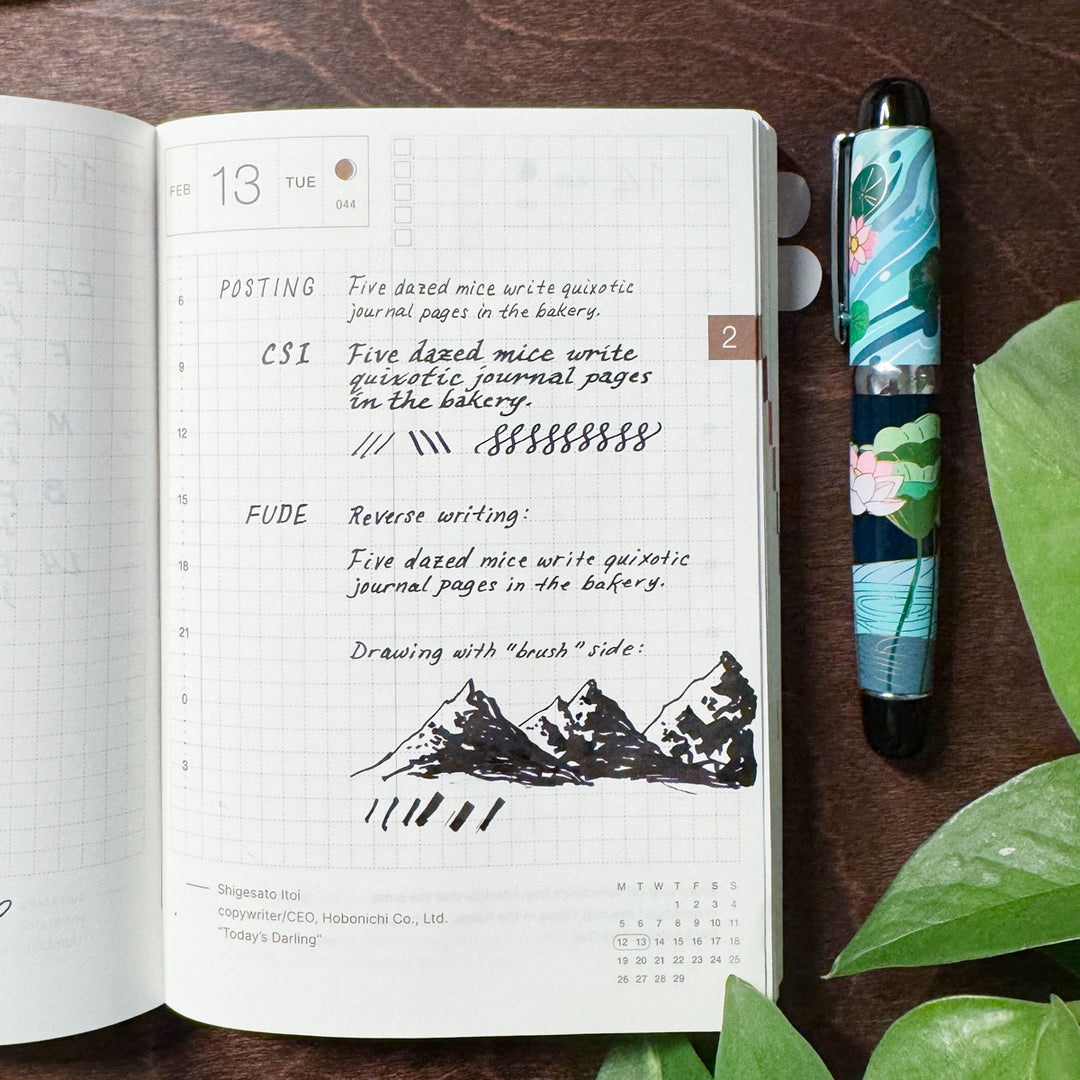 FEB 13 TUE
044
2
6
POSTING Five dazed mice write quixotic
journal pages in the bakery.
9
CSI Five dazed mice write
quixotic journal pages
in the bakery.
12
15
FUDE Reverse writing:
18
Five dazed mice write quixotic
journal pages in the bakery.
21
Drawing with "brush" side:
0
3
Shigesato Itoi
copywriter/CEO, Hobonichi Co., Ltd.
"Today's Darling"
M T W T F S S
1 2 3 4
5 6 7 8 9 10 11
12 13 14 15 16 17 18
19 20 21 22 23 24 25
26 27 28 29